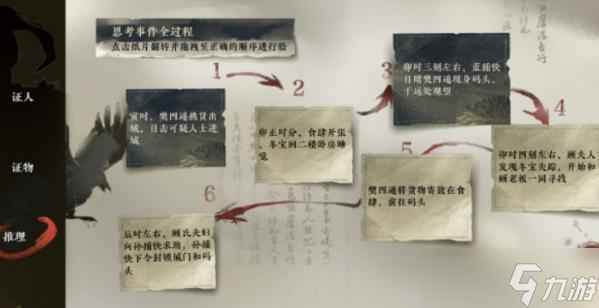 思考事件全过程
点击纸片翻转并拖拽至正确的顺序进行验
证人
证物
推理
1
寅时，樊四通挑货出
城，目击可疑人士进
城
2
卯正时分，食肆开张，
冬宝回二楼卧房睡
觉
3
卯时三刻左右，蓝捕快
目睹樊四通现身码头，
于远处观望
4
卯时四刻左右，顾夫人
发现冬宝失踪，开始和
顾老板一同寻找
5
樊四通将货物寄放在食
肆，前往码头
6
辰时左右，顾氏夫妇
向孙捕快求助，孙捕
快下令封锁城门和码
头
九游